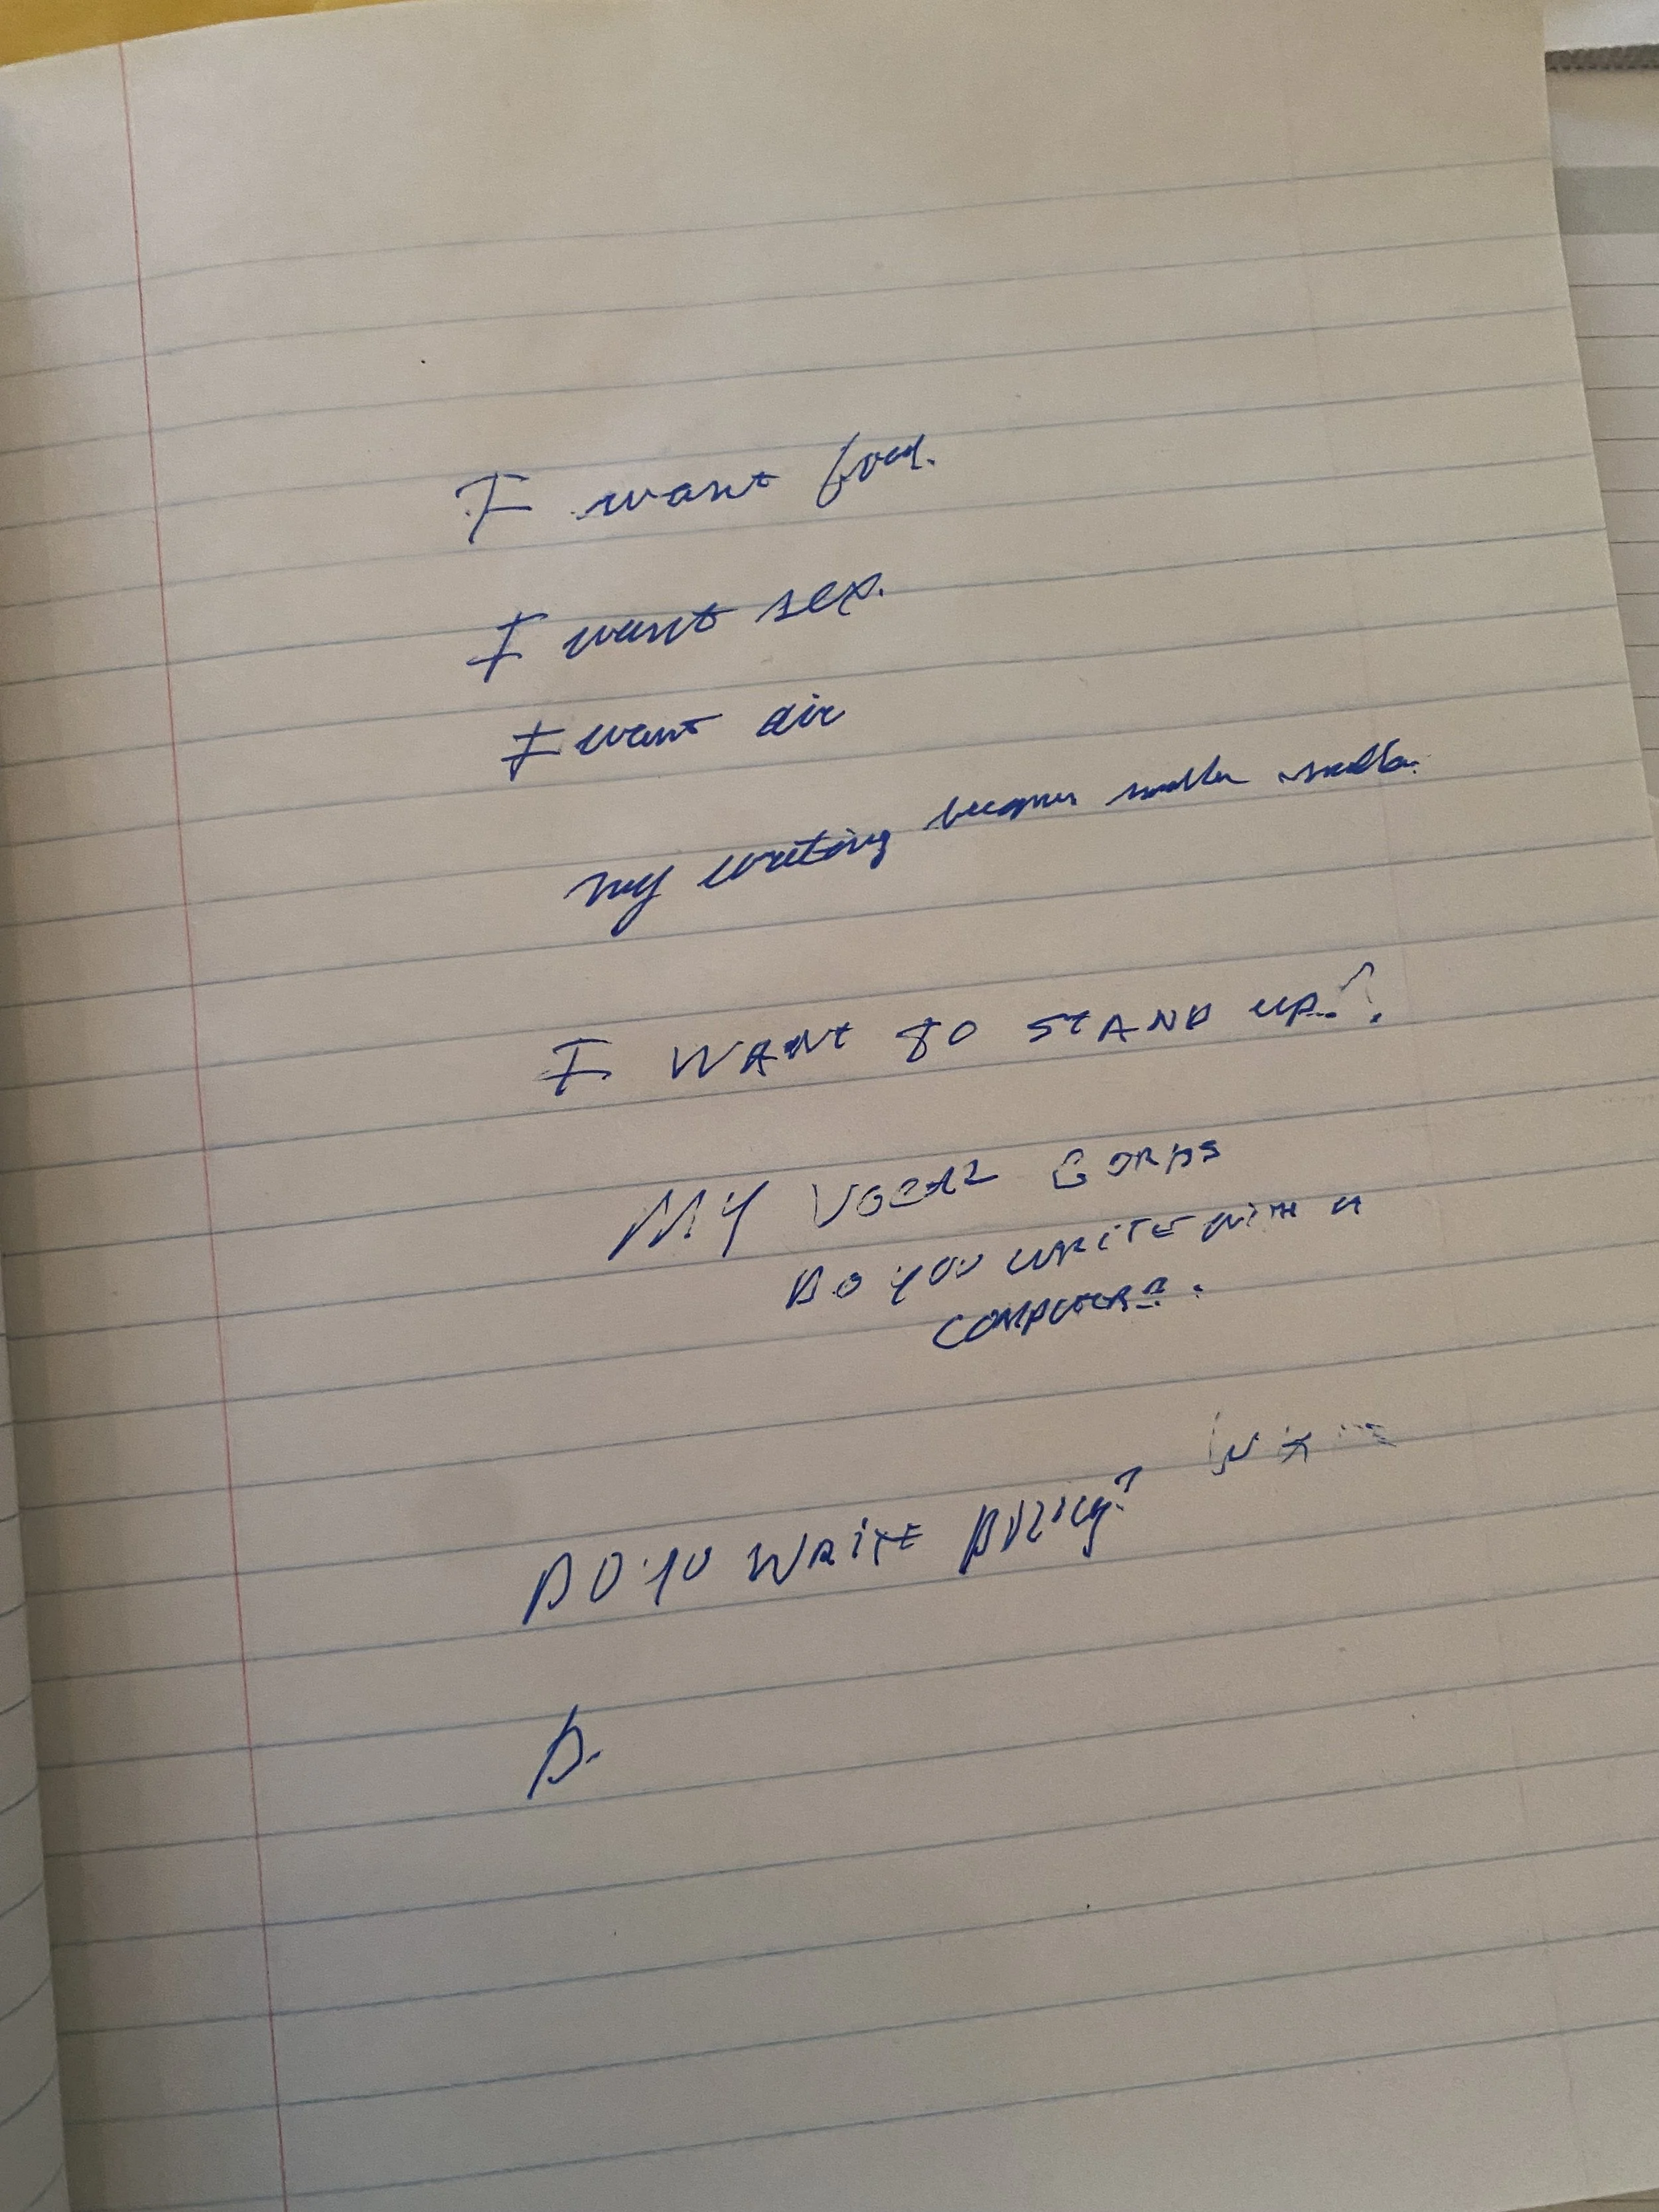 I want food.
I want sex.
I want air
my writing becomes smaller smaller.
I WANT TO STAND UP.?
MY VOCAL CORDS
DO YOU WRITE WITH A
COMPUTER?.
DO YU WRITE
D.